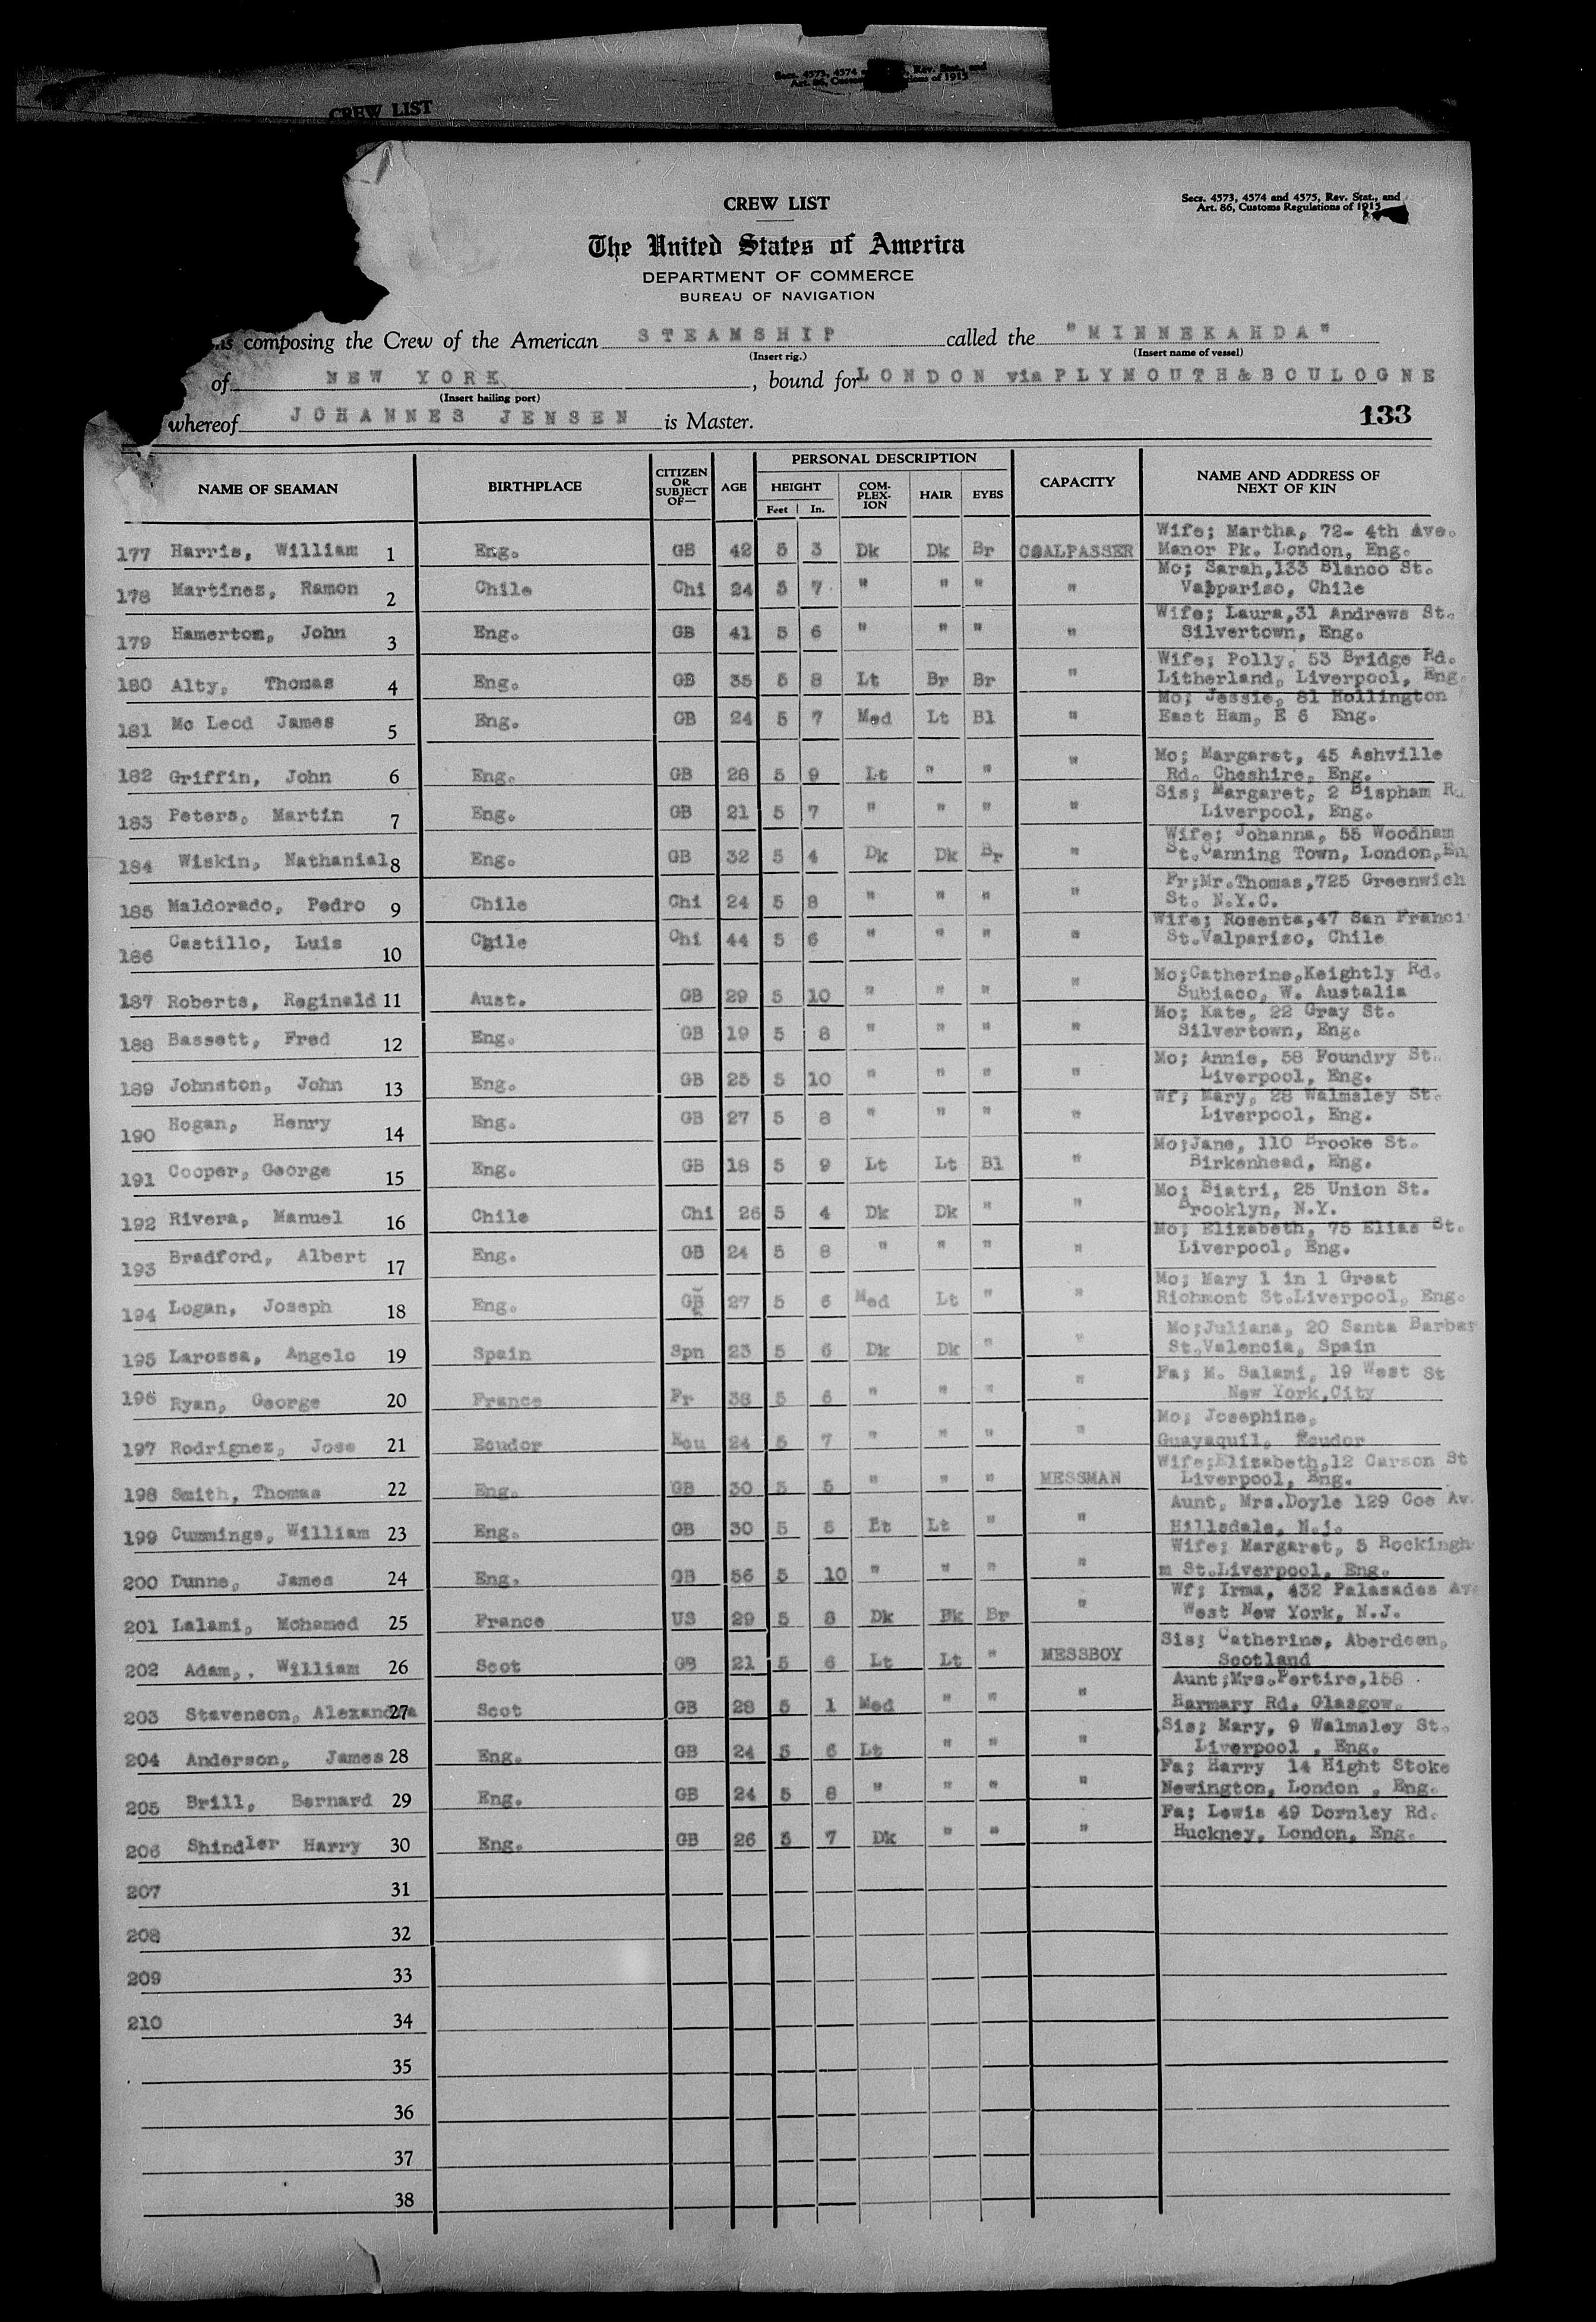 Secs. 4573, 4574 Rev. Stat., and
Art. 86, Customs Regulations of 1915
CREW LIST
CREW LIST
Secs. 4573, 4574 and 4575, Rev. Stat., and
Art. 86, Customs Regulations of 1915
The United States of America
DEPARTMENT OF COMMERCE
BUREAU OF NAVIGATION
composing the Crew of the American STEAMSHIP called the "MINNEKAHDA"
(Insert rig.) (Insert name of vessel)
of NEW YORK, bound for LONDON via PLYMOUTH & BOULOGNE
(Insert hailing port)
whereof JOHANNES JENSEN is Master. 133
NAME OF SEAMAN BIRTHPLACE CITIZEN OR SUBJECT OF— AGE PERSONAL DESCRIPTION CAPACITY NAME AND ADDRESS OF NEXT OF KIN
HEIGHT COM-PLEX-ION HAIR EYES
Feet In.
Wife; Martha, 72- 4th Ave.
177 Harris, William 1 Eng. GB 42 5 3 Dk Dk Br COALPASSER Manor Pk. London, Eng.
Mo; Sarah,133 Blanco St.
178 Martinez, Ramon 2 Chile Chi 24 5 7 " " " " Valppariso, Chile
Wife; Laura,31 Andrews St.
179 Hamerton, John 3 Eng. GB 41 5 6 " " " " Silvertown, Eng.
Wife; Polly, 53 Bridge Rd.
180 Alty, Thomas 4 Eng. GB 35 5 8 Lt Br Br " Litherland, Liverpool, Eng.
Mo; Jessie, 81 Hollington
181 Mc Leod James 5 Eng. GB 24 5 7 Med Lt Bl " East Ham, E 6 Eng.
Mo; Margaret, 45 Ashville
182 Griffin, John 6 Eng. GB 28 5 9 Lt " " " Rd. Cheshire, Eng.
Sis; Margaret, 2 Bispham Rd.
183 Peters, Martin 7 Eng. GB 21 5 7 " " " " Liverpool, Eng.
Wife; Johanna, 55 Woodham
184 Wiskin, Nathanial 8 Eng. GB 32 5 4 Dk Dk Br " St.Canning Town, London,En
Fr;Mr.Thomas,725 Greenwich
185 Maldorado, Pedro 9 Chile Chi 24 5 8 " " " " St. N.Y.C.
Wife; Rosenta,47 San Franci
186 Castillo, Luis 10 Chile Chi 44 5 6 " " " " St.Valpariso, Chile
Mo;Catherine,Keightly Rd.
187 Roberts, Reginald 11 Aust. GB 29 5 10 " " " " Subiaco, W. Austalia
Mo; Kate, 22 Gray St.
188 Bassett, Fred 12 Eng. GB 19 5 8 " " " " Silvertown, Eng.
Mo; Annie, 58 Foundry St.
189 Johnston, John 13 Eng. GB 25 5 10 " " " " Liverpool, Eng.
Wf; Mary, 28 Walmsley St.
190 Hogan, Henry 14 Eng. GB 27 5 8 " " " " Liverpool, Eng.
Mo;Jane, 110 Brooke St.
191 Cooper, George 15 Eng. GB 18 5 9 Lt Lt Bl " Birkenhead, Eng.
Mo; Biatri, 25 Union St.
192 Rivera, Manuel 16 Chile Chi 26 5 4 Dk Dk " " Brooklyn, N.Y.
Mo; Elizabeth, 75 Elias St.
193 Bradford, Albert 17 Eng. GB 24 5 8 " " " " Liverpool, Eng.
Mo; Mary 1 in 1 Great
194 Logan, Joseph 18 Eng. GB 27 5 6 Med Lt " " Richmont St.Liverpool, Eng.
Mo;Juliana, 20 Santa Barbar
195 Larossa, Angelo 19 Spain Spn 23 5 6 Dk Dk " " St.Valencia, Spain
Fa; M. Salami, 19 West St
196 Ryan, George 20 France Fr 38 5 6 " " " " New York,City
Mo; Josephine,
197 Rodrignez, Jose 21 Ecudor Ecu 24 5 7 " " " " Guayaquil, Ecudor
Wife;Elizabeth,12 Carson St
198 Smith, Thomas 22 Eng. GB 30 5 5 " " " MESSMAN Liverpool, Eng.
Aunt, Mrs.Doyle 129 Coe Av.
199 Cummings, William 23 Eng. GB 30 5 5 Lt Lt " " Hillsdale, N.j.
Wife; Margaret, 5 Rockingh
200 Dunne, James 24 Eng. GB 56 5 10 " " " " m St.Liverpool, Eng.
Wf; Irma, 432 Palasades Ave
201 Lalami, Mohamed 25 France US 29 5 8 Dk Bk Br " West New York, N.J.
Sis; Catherine, Aberdeen,
202 Adam,. William 26 Scot GB 21 5 6 Lt Lt " MESSBOY Scotland
Aunt;Mrs.Pertire,158
203 Stevenson, Alexandra 27 Scot GB 28 5 1 Med " " " Harmary Rd. Glasgow.
Sis; Mary, 9 Walmsley St.
204 Anderson, James 28 Eng. GB 24 5 6 Lt " " " Liverpool , Eng.
Fa; Harry 14 Hight Stoke
205 Brill, Bernard 29 Eng. GB 24 5 8 " " " " Newington, London , Eng.
Fa; Lewis 49 Dornley Rd.
206 Shindler Harry 30 Eng. GB 26 5 7 Dk " " " Huckney, London, Eng.
207 31
208 32
209 33
210 34
35
36
37
38